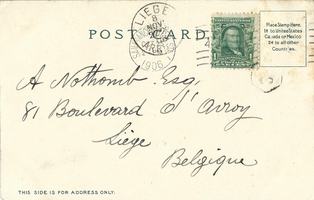 LIÈGE
NOV
1906
POST CARD
Place Stamp Here.
1¢ to United States
Canada or Mexico
2¢ to all other
Countries.
A Nothomb Esq
81 Boulevard d'Avroy
Liège
Belgique
THIS SIDE IS FOR ADDRESS ONLY.